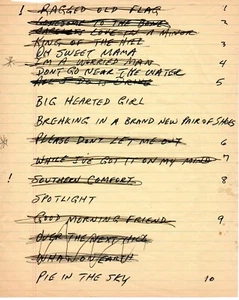 ! RAGGED OLD FLAG 1
LONESOME TO THE BONE 2
CARELESS LOVE IN A MINOR
KING OF THE HILL 3
OH SWEET MAMA
* I'M A WORRIED MAN 4
DON'T GO NEAR THE WATER
5
BIG HEARTED GIRL
BREAKING IN A BRAND NEW PAIR OF SHOES
* PLEASE DON'T LET ME OUT 6
WHILE I'VE GOT IT ON MY MIND 7
! SOUTHERN COMFORT 8
SPOTLIGHT
GOOD MORNING FRIEND 9
OVER THE NEXT HILL
WHAT ON EARTH
PIE IN THE SKY 10